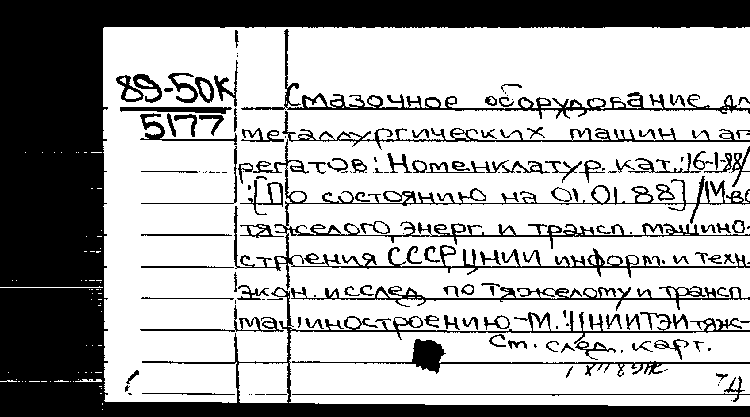 89-50К
5177
Смазочное оборудование для
металлургических машин и аг-
регатов: Номенклатур. кат.: 16-1-88/
:[По состоянию на 01.01.88] / М-во
тяжелого, энерг. и трансп. машино-
строения СССР, ЦНИИ информ. и техн.
экон. исслед. по тяжелому и трансп.
машиностроению.-М.: ЦНИИТЭИтяж-
См. след. карт.